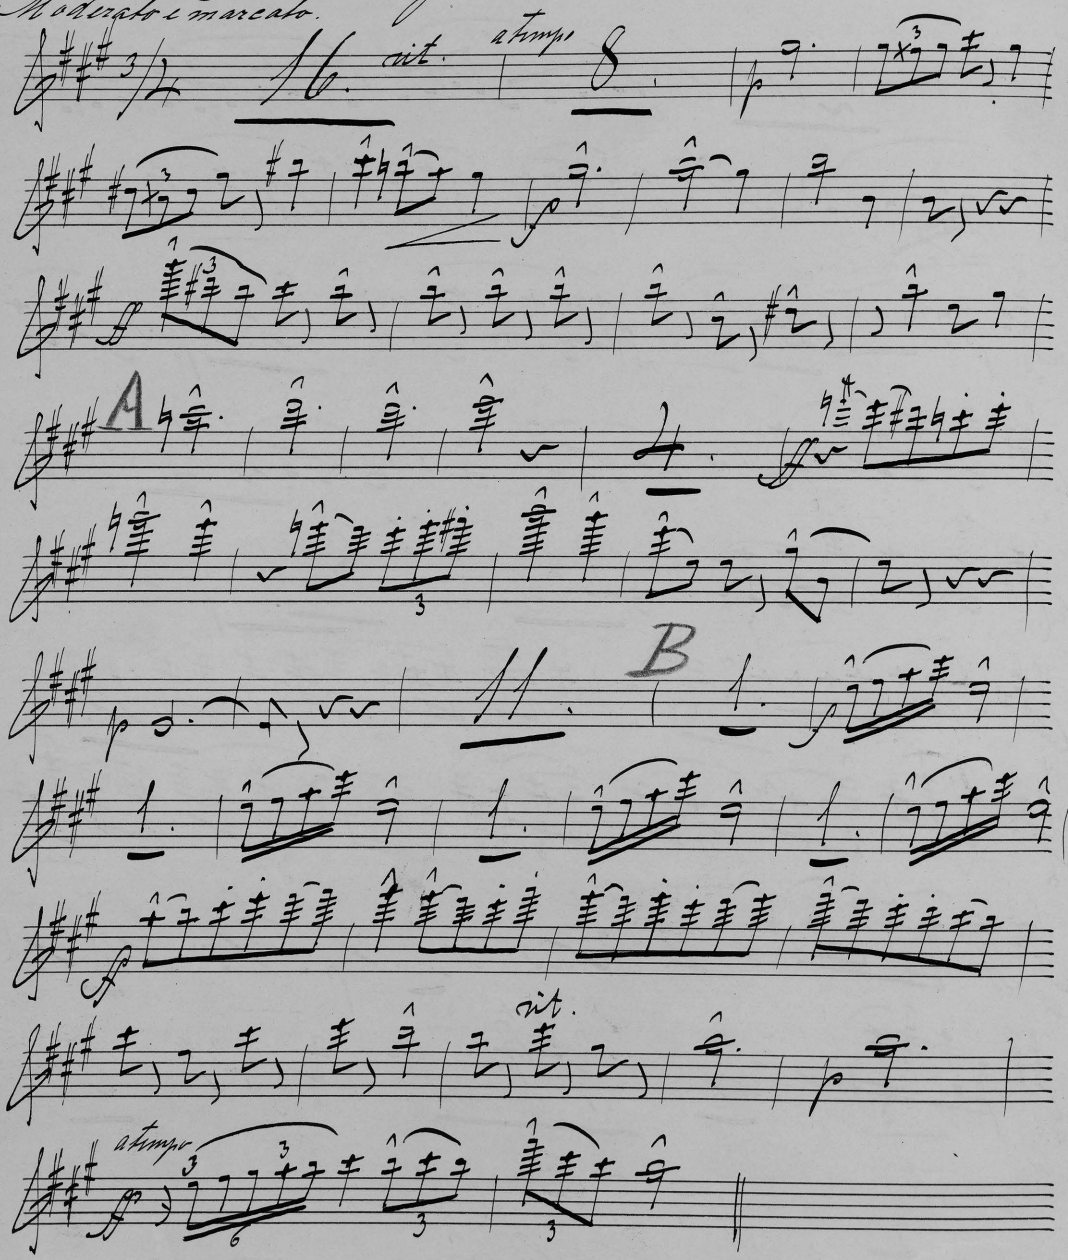 Moderato e marcato.
3/4 16. rit. a tempo 8. p 3
3 f
ff 3
A 4. ff
3
p 11. B 1. f
1. 1. 1.
f
rit.
p
a tempo
ff 3 3 6 3 3